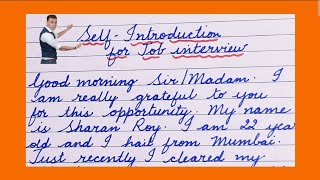 Self-Introduction
for Job interview
Good morning Sir/Madam. I
am really grateful to you
for this opportunity. My name
is Sharan Roy. I am 22 yea
old and I hail from Mumbai.
Just recently I cleared my